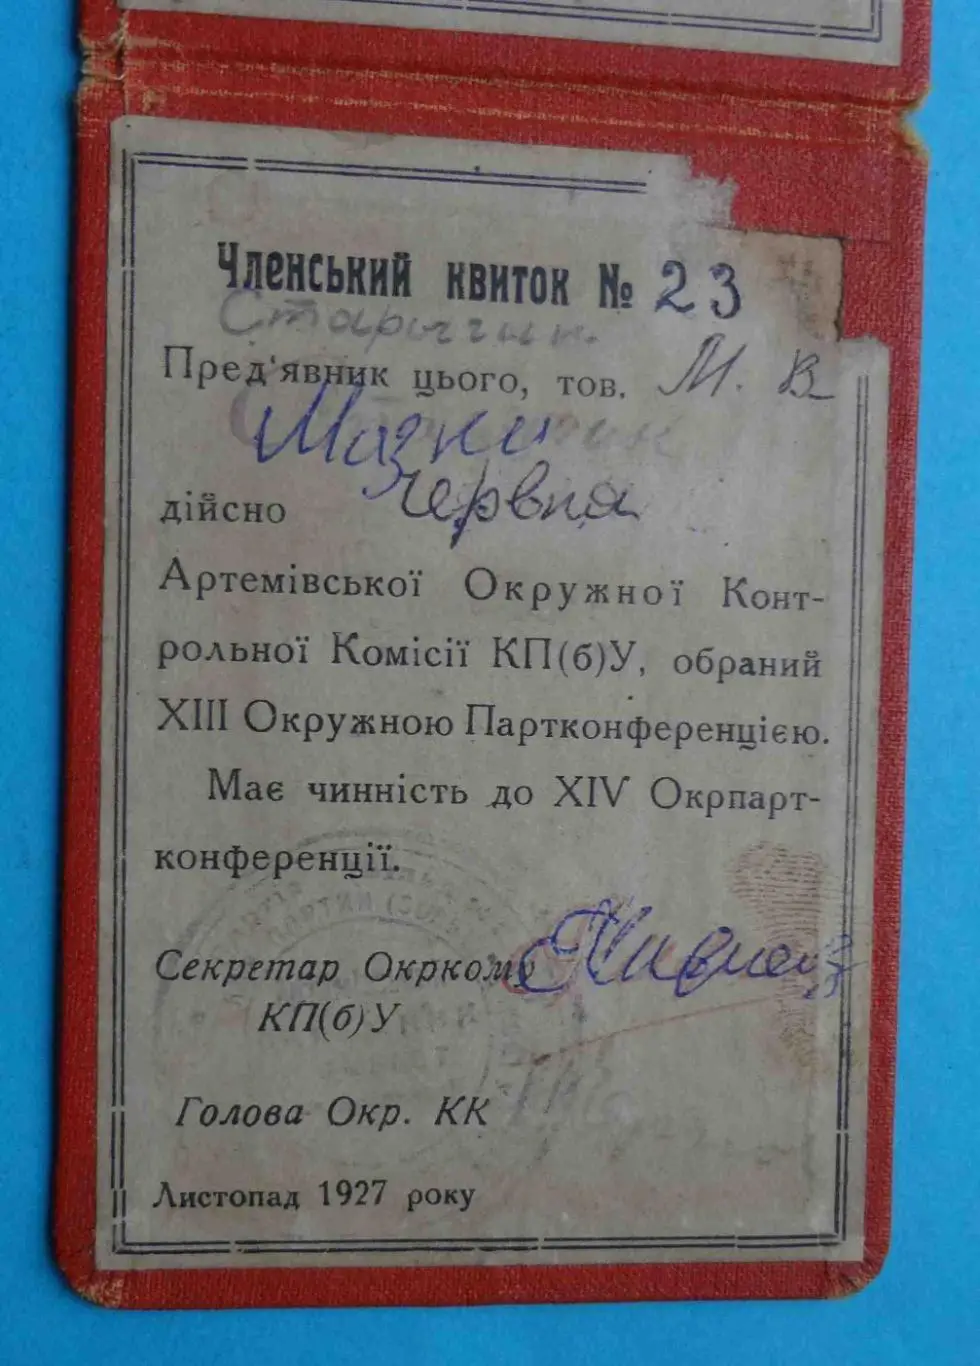 Членський квиток № 23
Пред'явник цього, тов. М. В
дійсно
Артемівської Окружної Конт-
рольної Комісії КП(б)У, обраний
XIII Окружною Партконференцією.
Має чинність до XIV Окрпарт-
конференції.
Секретар Окркому
КП(б)У
Голова Окр. КК
Листопад 1927 року